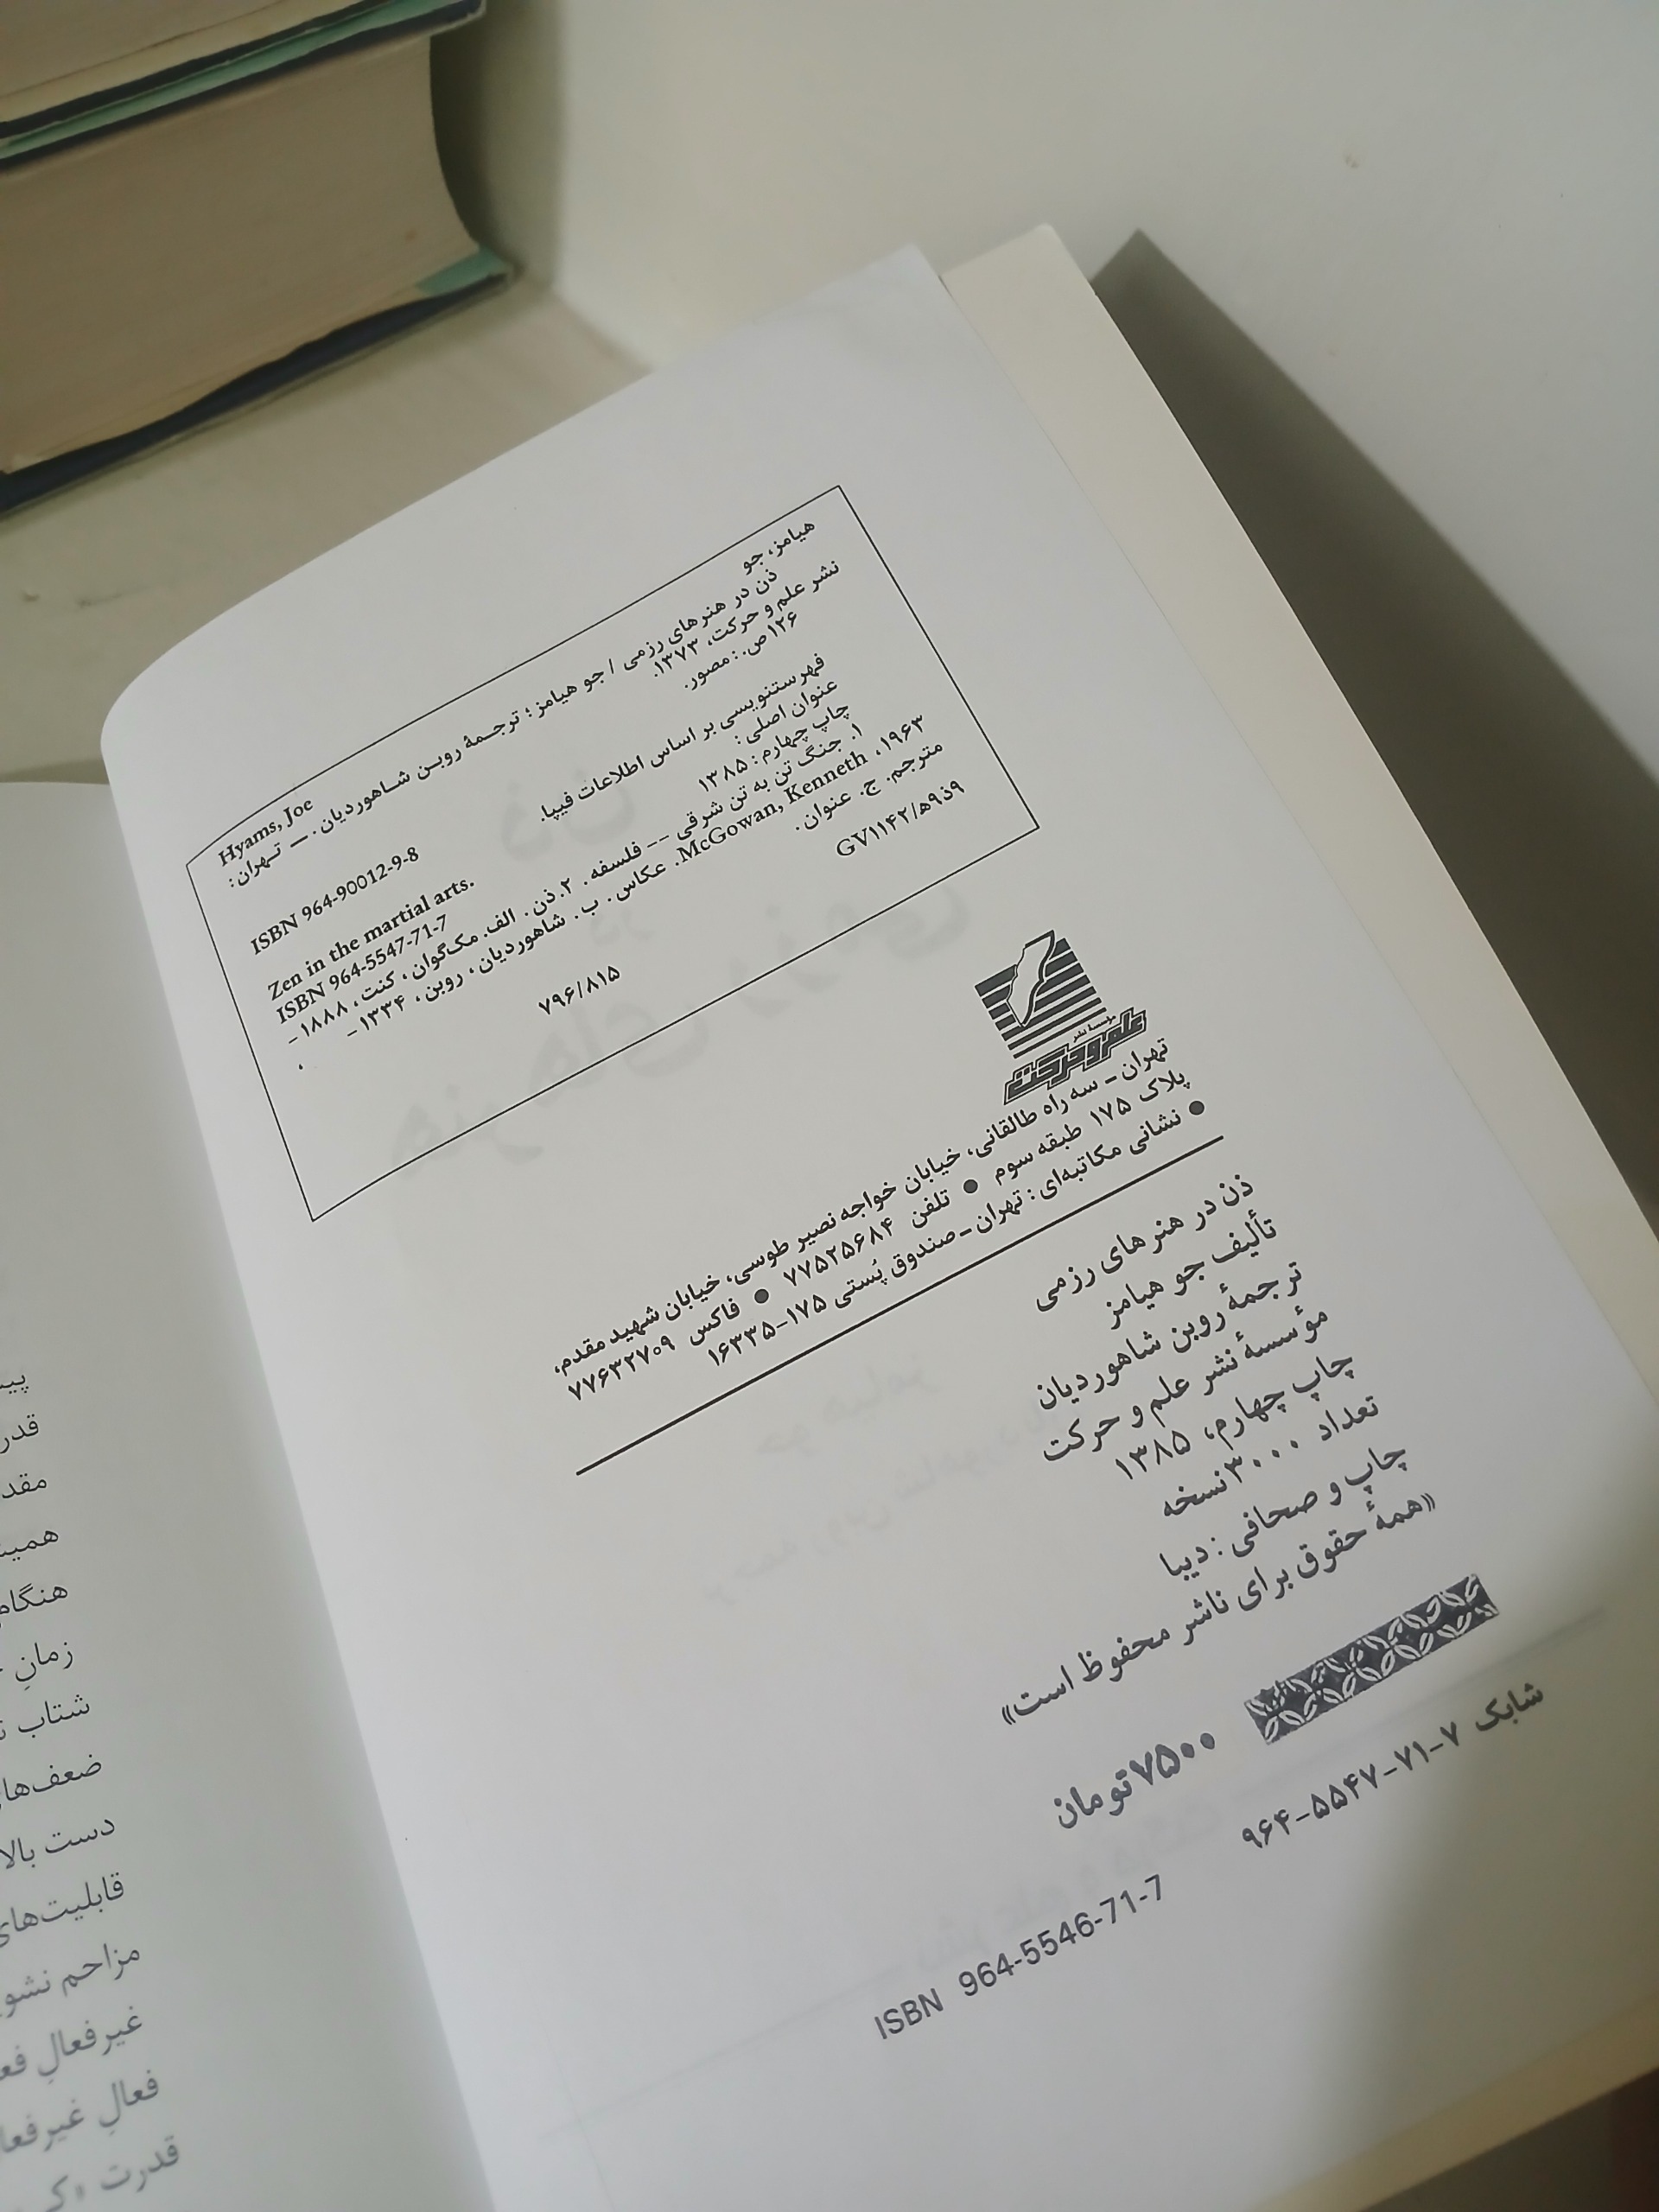 هیامز، جو
Hyams, Joe
ذن در هنرهای رزمی / جو هیامز؛ ترجمهٔ روبن شاهوردیان. — تهران:
نشر علم و حرکت، ۱۳۷۳.
۱۲۶ص.: مصور.
ISBN 964-90012-9-8
فهرستنویسی بر اساس اطلاعات فیپا.
عنوان اصلی:
Zen in the martial arts.
چاپ چهارم: ۱۳۸۵
ISBN 964-5547-71-7
۱. جنگ تن به تن شرقی -- فلسفه. ۲.ذن. الف. مک‌گوان، کنت، ۱۸۸۸ -
۱۹۶۳، McGowan, Kenneth. عکاس. ب. شاهوردیان، روبن، ۱۳۳۴ - ،
مترجم. ج. عنوان.
۷۹۶/۸۱۵
GV۱۱۴۲/ﻫ۹ذ۹
مؤسسهٔ نشر
علم و حرکت
تهران – سه راه طالقانی، خیابان خواجه نصیر طوسی، خیابان شهید مقدم،
پلاک ۱۷۵ طبقه سوم ● تلفن ۷۷۵۲۵۶۸۴ ● فاکس ۷۷۶۳۲۷۰۹
● نشانی مکاتبه‌ای: تهران – صندوق پُستی ۱۷۵–۱۶۳۳۵
ذن در هنرهای رزمی
تألیف جو هیامز
ترجمهٔ روبن شاهوردیان
مؤسسهٔ نشر علم و حرکت
چاپ چهارم، ۱۳۸۵
تعداد ۳۰۰۰ نسخه
چاپ و صحافی: دیبا
«همهٔ حقوق برای ناشر محفوظ است»
۷۵۰۰ تومان
شابک ۷–۷۱–۵۵۴۷–۹۶۴
ISBN 964-5546-71-7
قدر
مقد
زمانِ
شتاب
دست بالا
قابلیت‌های
مزاحم
غیرفعالِ
فعالِ
قدرت